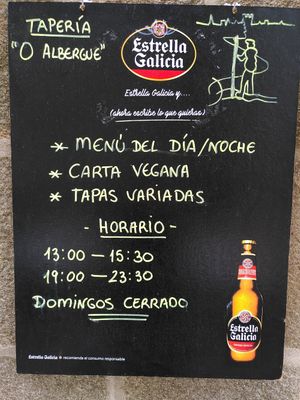 TAPERÍA
"O ALBERGUE"
Estrella
Galicia
Estrella Galicia y....
(ahora escribe lo que quieras)
* MENÚ DEL DÍA/NOCHE
* CARTA VEGANA
* TAPAS VARIADAS
- HORARIO -
13:00 — 15:30
19:00 — 23:30
DOMINGOS CERRADO
Estrella
Galicia
Estrella Galicia recomienda el consumo responsable